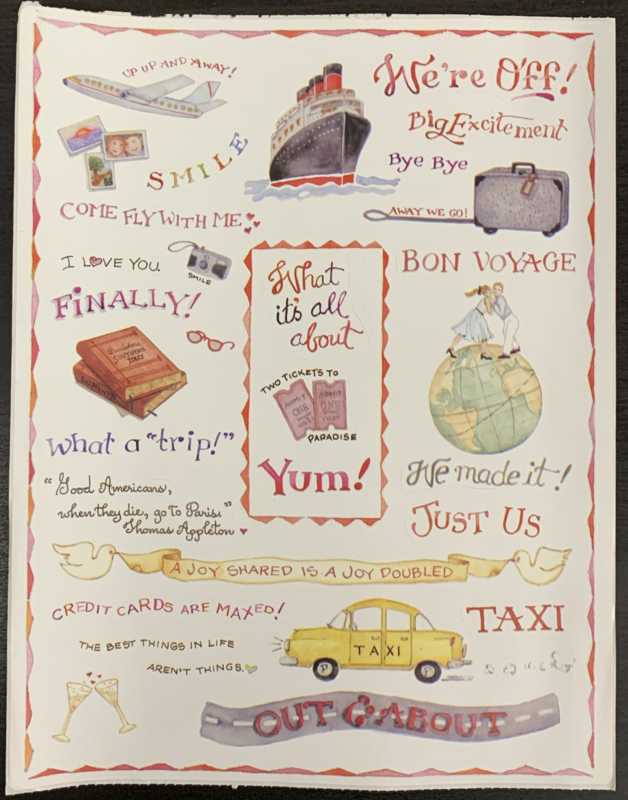 UP UP AND AWAY!
We're Off!
Big Excitement
SMILE
Bye Bye
COME FLY WITH ME
AWAY WE GO!
I LOVE YOU.
SMILE
FiNALLY!
What
it's all
about
BON VOYAGE
SOUTHERN
ITALY
LONDON
TWO TICKETS TO
ADMIT
ONE
ADMIT
ONE
PARADISE
What a "trip!"
Yum!
We made it!
"Good Americans,
when they die, go to Paris."
Thomas Appleton
JUST US
A JOY SHARED IS A JOY DOUBLED
CREDIT CARDS ARE MAXED!
THE BEST THINGS IN LIFE
AREN'T THINGS.
TAXI
TAXI
OUT & ABOUT